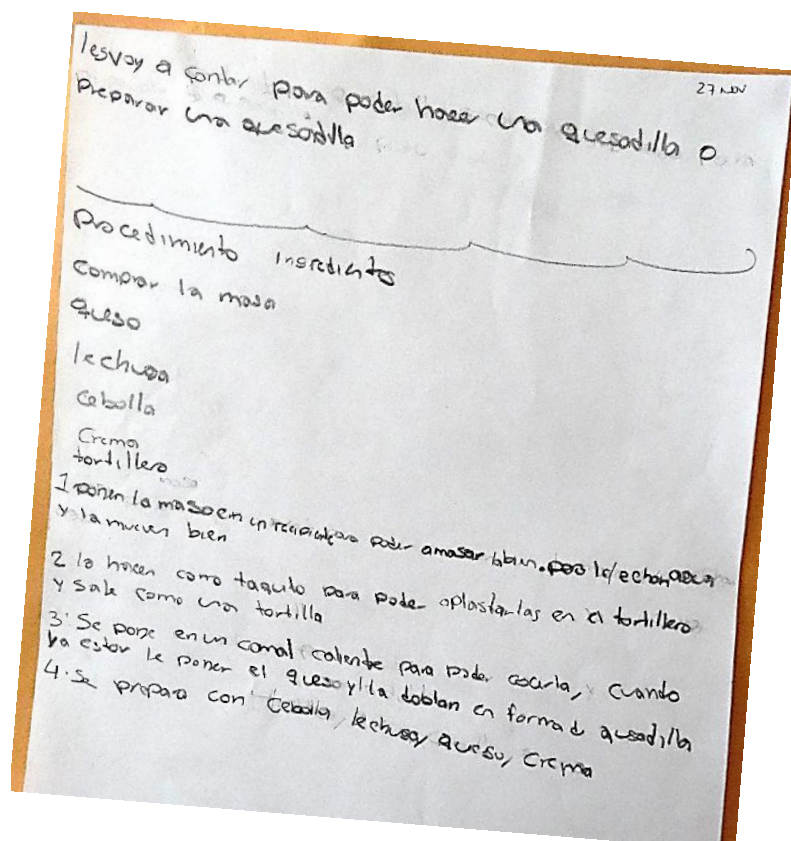 27 NOV
lesvoy a contar para poder hacer una quesadilla o
preparar una quesadilla
procedimiento ingredientes
comprar la masa
queso
lechuga
cebolla
Crema
tortillero
1 ponen la masa en un recipiente para poder amasar bien. le echan agua
y la mueven bien
2 lo hacen como taquito para poder aplastarlas en el tortillero
y sale como una tortilla
3. Se pone en un comal caliente para poder cocerla, cuando
ya estar le poner el queso y la doblan en forma d quesadilla
4. Se prepara con cebolla, lechuga, queso, crema